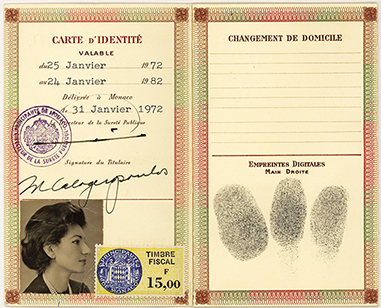 CARTE D'IDENTITÉ
VALABLE
du 25 Janvier 1972
au 24 Janvier 1982
Délivrée à Monaco
le 31 Janvier 1972
Directeur de la Sureté Publique
Signature du Titulaire
M Calogeropoulos
TIMBRE
FISCAL
F
15,00
CHANGEMENT DE DOMICILE
EMPREINTES DIGITALES
MAIN DROITE